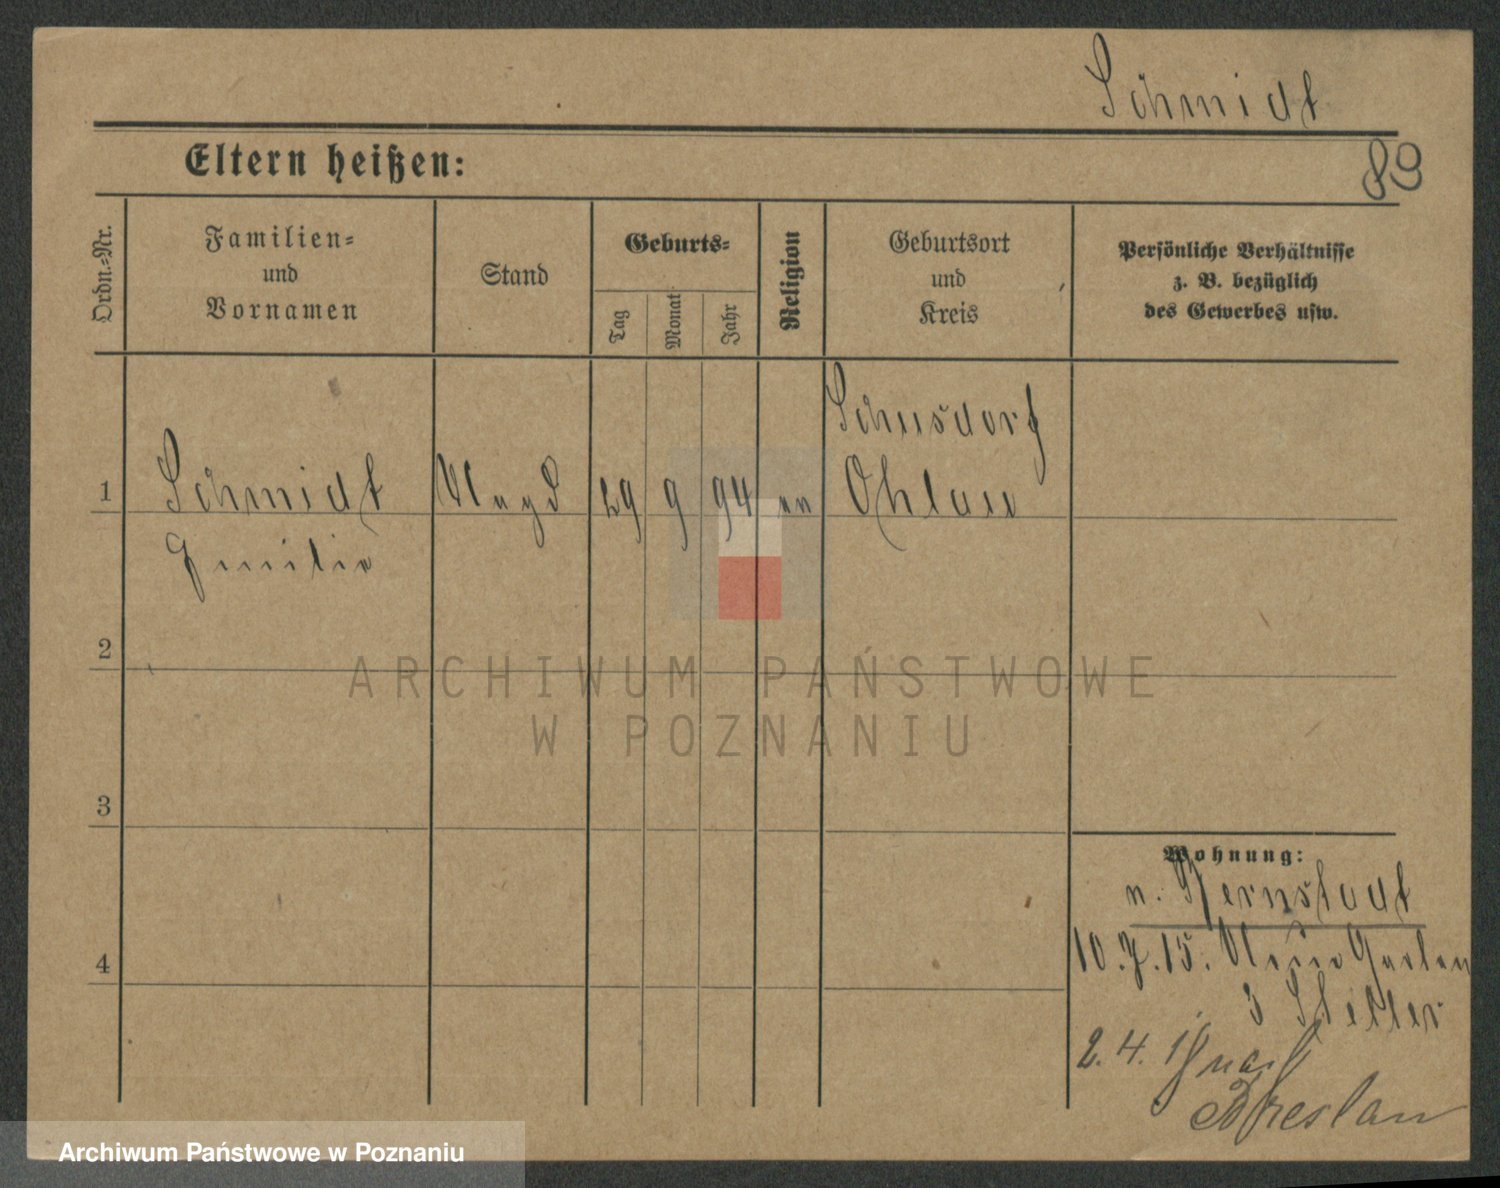 Schmidt
89
Eltern heißen:
Ordn.-Nr.
Familien-
und
Vornamen
Stand
Geburts-
Tag
Monat
Jahr
Religion
Geburtsort
und
Kreis
Persönliche Verhältnisse
z. B. bezüglich
des Gewerbes usw.
1
Schmidt
Magd
29
9
94
ev
Schusdorf
Ohlau
Emilie
2
3
4
Wohnung:
n. Bernstadt
10. 7. 15. Neue Garten
3
2. 4.
nach
Breslau
ARCHIWUM PAŃSTWOWE
W POZNANIU
Archiwum Państwowe w Poznaniu